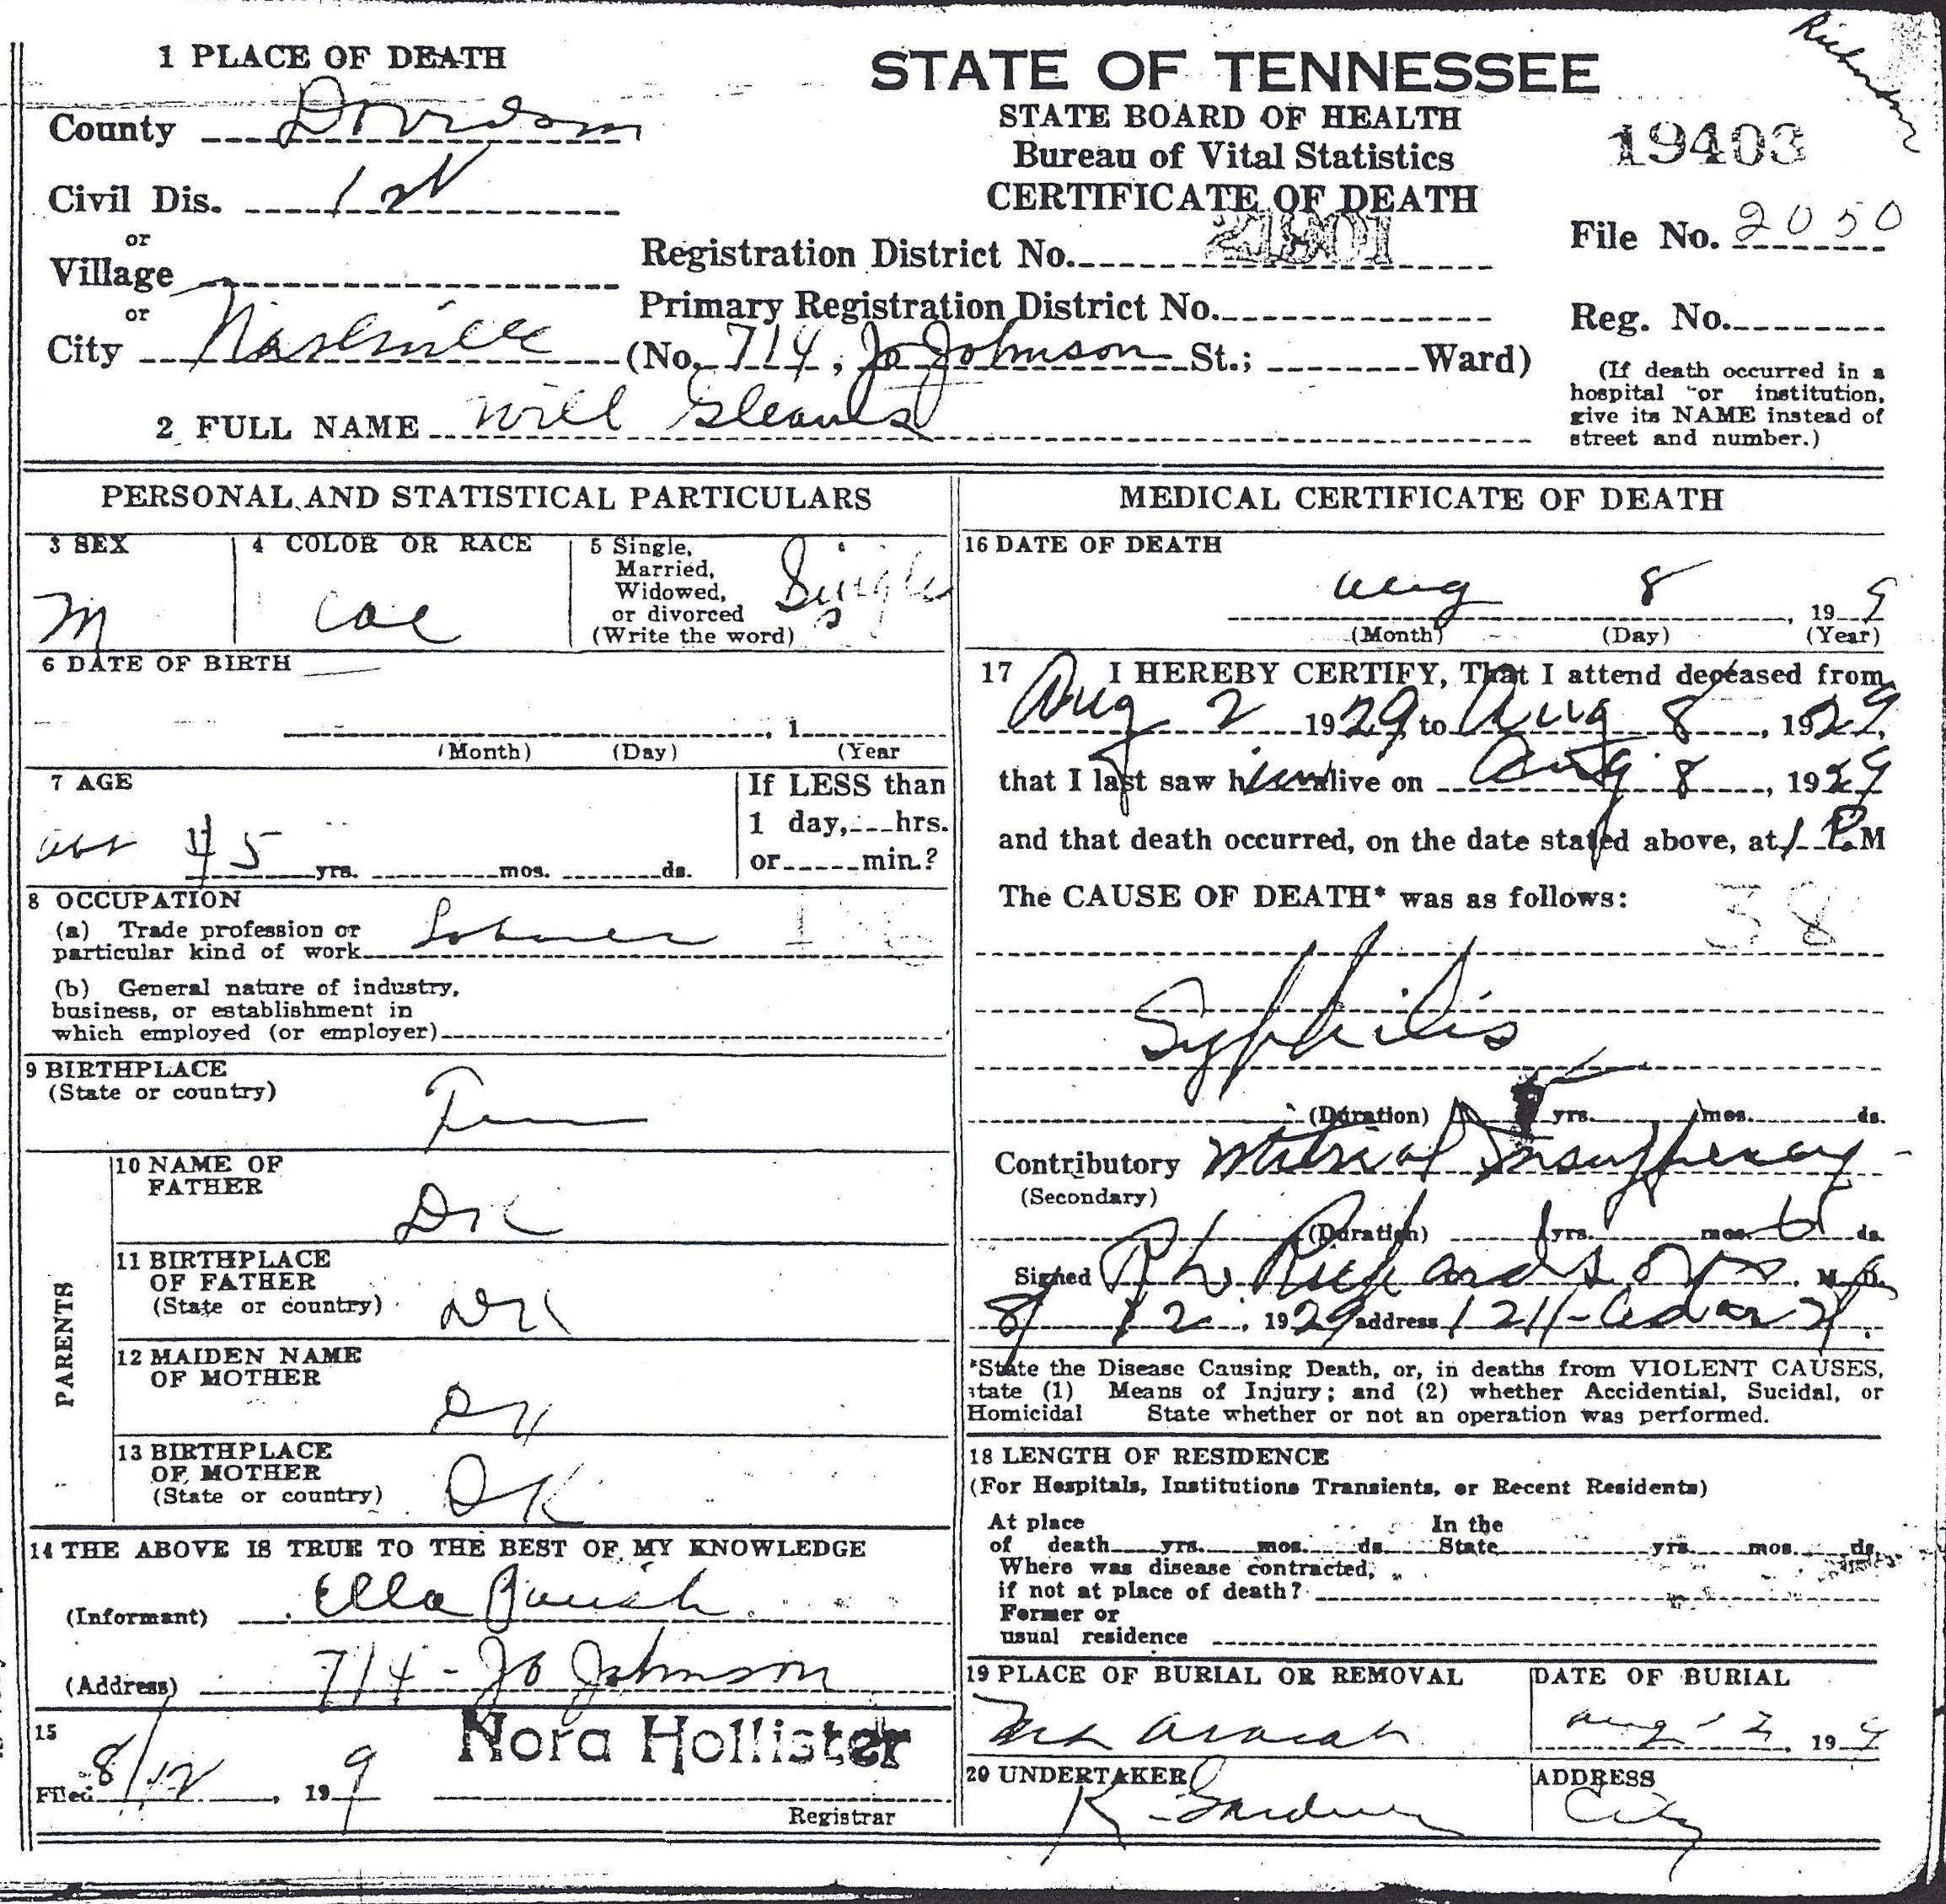 Richardson
1 PLACE OF DEATH
County Davidson
Civil Dis. 1st
or
Village
or
City Nashville
STATE OF TENNESSEE
STATE BOARD OF HEALTH
Bureau of Vital Statistics
CERTIFICATE OF DEATH
19403
Registration District No. 21901
File No. 2050
Primary Registration District No.
Reg. No.
(No. 714, Jo Johnson St.; Ward)
(If death occurred in a
hospital or institution,
give its NAME instead of
street and number.)
2 FULL NAME Will Gleaves
PERSONAL AND STATISTICAL PARTICULARS
3 SEX
M
4 COLOR OR RACE
Col
5 Single,
Married,
Widowed,
or divorced
(Write the word)
Single
S
6 DATE OF BIRTH
, 1
(Month) (Day) (Year
7 AGE
abt 45 yrs. mos. ds.
If LESS than
1 day, hrs.
or min.?
8 OCCUPATION
(a) Trade profession or
particular kind of work Laborer
(b) General nature of industry,
business, or establishment in
which employed (or employer)
9 BIRTHPLACE
(State or country)
Tenn
PARENTS
10 NAME OF
FATHER
DK
11 BIRTHPLACE
OF FATHER
(State or country)
DK
12 MAIDEN NAME
OF MOTHER
DK
13 BIRTHPLACE
OF MOTHER
(State or country)
DK
14 THE ABOVE IS TRUE TO THE BEST OF MY KNOWLEDGE
(Informant) Ella
(Address) 714 - Jo Johnson
15
Filed 8/12, 19 9
Nora Hollister
Registrar
MEDICAL CERTIFICATE OF DEATH
16 DATE OF DEATH
Aug 8, 19 9
(Month) (Day) (Year)
17 I HEREBY CERTIFY, That I attend deceased from
Aug 2 1929, to Aug 8, 1929,
that I last saw him alive on Aug 8, 1929
and that death occurred, on the date stated above, at 1 P.M
The CAUSE OF DEATH* was as follows:
38
Syphilis
(Duration) yrs. mos. ds.
Contributory Mitral Insufficiency
(Secondary)
(Duration) yrs. mos. 6 ds.
Signed R L Richardson, M.D.
8/12, 1929 address 1211 - Cedar St.
*State the Disease Causing Death, or, in deaths from VIOLENT CAUSES,
state (1) Means of Injury; and (2) whether Accidential, Sucidal, or
Homicidal State whether or not an operation was performed.
18 LENGTH OF RESIDENCE
(For Hospitals, Institutions Transients, or Recent Residents)
At place
of death yrs. mos. ds.
In the
State yrs. mos. ds.
Where was disease contracted,
if not at place of death?
Former or
usual residence
19 PLACE OF BURIAL OR REMOVAL
Mt Ararat
DATE OF BURIAL
Aug 12, 19 9
20 UNDERTAKER
K Gardner
ADDRESS
City